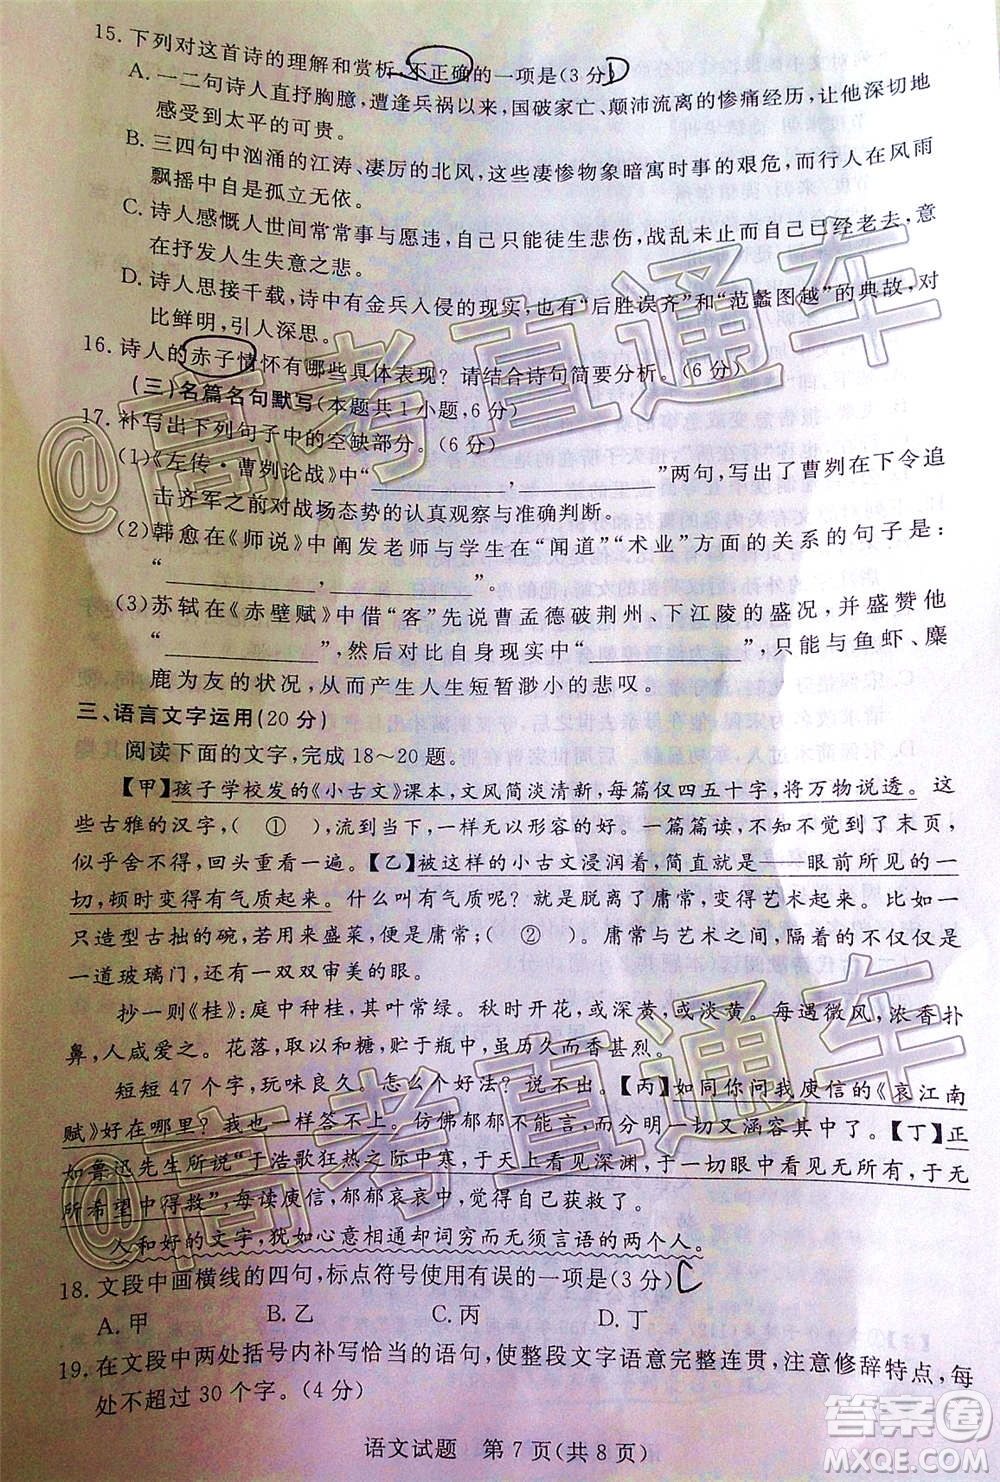 15. 下列对这首诗的理解和赏析,不正确的一项是(3分)
A. 一二句诗人直抒胸臆,遭逢兵祸以来,国破家亡、颠沛流离的惨痛经历,让他深切地
感受到太平的可贵。
B. 三四句中汹涌的江涛、凄厉的北风,这些凄惨物象暗寓时事的艰危,而行人在风雨
飘摇中自是孤立无依。
C. 诗人感慨人世间常常事与愿违,自己只能徒生悲伤,战乱未止而自己已经老去,意
在抒发人生失意之悲。
D. 诗人思接千载,诗中有金兵入侵的现实,也有“后胜误齐”和“范蠡图越”的典故,对
比鲜明,引人深思。
16. 诗人的赤子情怀有哪些具体表现?请结合诗句简要分析。(6分)
(三)名篇名句默写(本题共1小题,6分)
17. 补写出下列句子中的空缺部分。(6分)
(1)《左传·曹刿论战》中“________,________”两句,写出了曹刿在下令追
击齐军之前对战场态势的认真观察与准确判断。
(2)韩愈在《师说》中阐发老师与学生在“闻道”“术业”方面的关系的句子是:
“________,________”。
(3)苏轼在《赤壁赋》中借“客”先说曹孟德破荆州、下江陵的盛况,并盛赞他
“________”,然后对比自身现实中“________”,只能与鱼虾、麋
鹿为友的状况,从而产生人生短暂渺小的悲叹。
三、语言文字运用(20分)
阅读下面的文字,完成18~20题。
【甲】孩子学校发的《小古文》课本,文风简淡清新,每篇仅四五十字,将万物说透。这
些古雅的汉字,( ① ),流到当下,一样无以形容的好。一篇篇读,不知不觉到了末页,
似乎舍不得,回头重看一遍。【乙】被这样的小古文浸润着,简直是——眼前所见的一
切,顿时变得有气质起来。什么叫有气质?就是脱离了庸常,变得艺术起来。比如,
一只造型古拙的碗,若用来盛菜,便是庸常;( ② )。庸常与艺术之间,隔着的不过是
一道玻璃门,还有一双双审美的眼。
抄一则《桂》:庭中种桂,其叶常绿。秋时开花,或深黄,或淡黄。每遇微风,浓香扑
鼻,人咸爱之。花落,取以和糖,贮于瓶中,虽历久而香甚烈。
短短47个字,玩味良久。怎么个好法?说不出。【丙】如同你问我庾信的《哀江南
赋》好在哪里?我也一样答不上。仿佛郁郁不能言,分明一切又涵容其中了。【丁】正
如鲁迅先生所说“于浩歌狂热之际中寒,于天上看见深渊,于一切眼中看见无所有,于无
所希望中得救”,每读庾信,郁郁哀哀中,觉得自己获救了。
人和好的文字,犹如心意相通却词穷而无言语的两个人。
18. 文段中画横线的四句,标点符号使用有误的一项是(3分) C
A. 甲 B. 乙 C. 丙 D. 丁
19. 在文段中两处括号内补写恰当的语句,使整段文字语意完整连贯,注意修辞特点,每
处不超过30个字。(4分)
语文试题 第7页(共8页)
@高考直通车
@高考直通车
答案圈
MXQE.COM